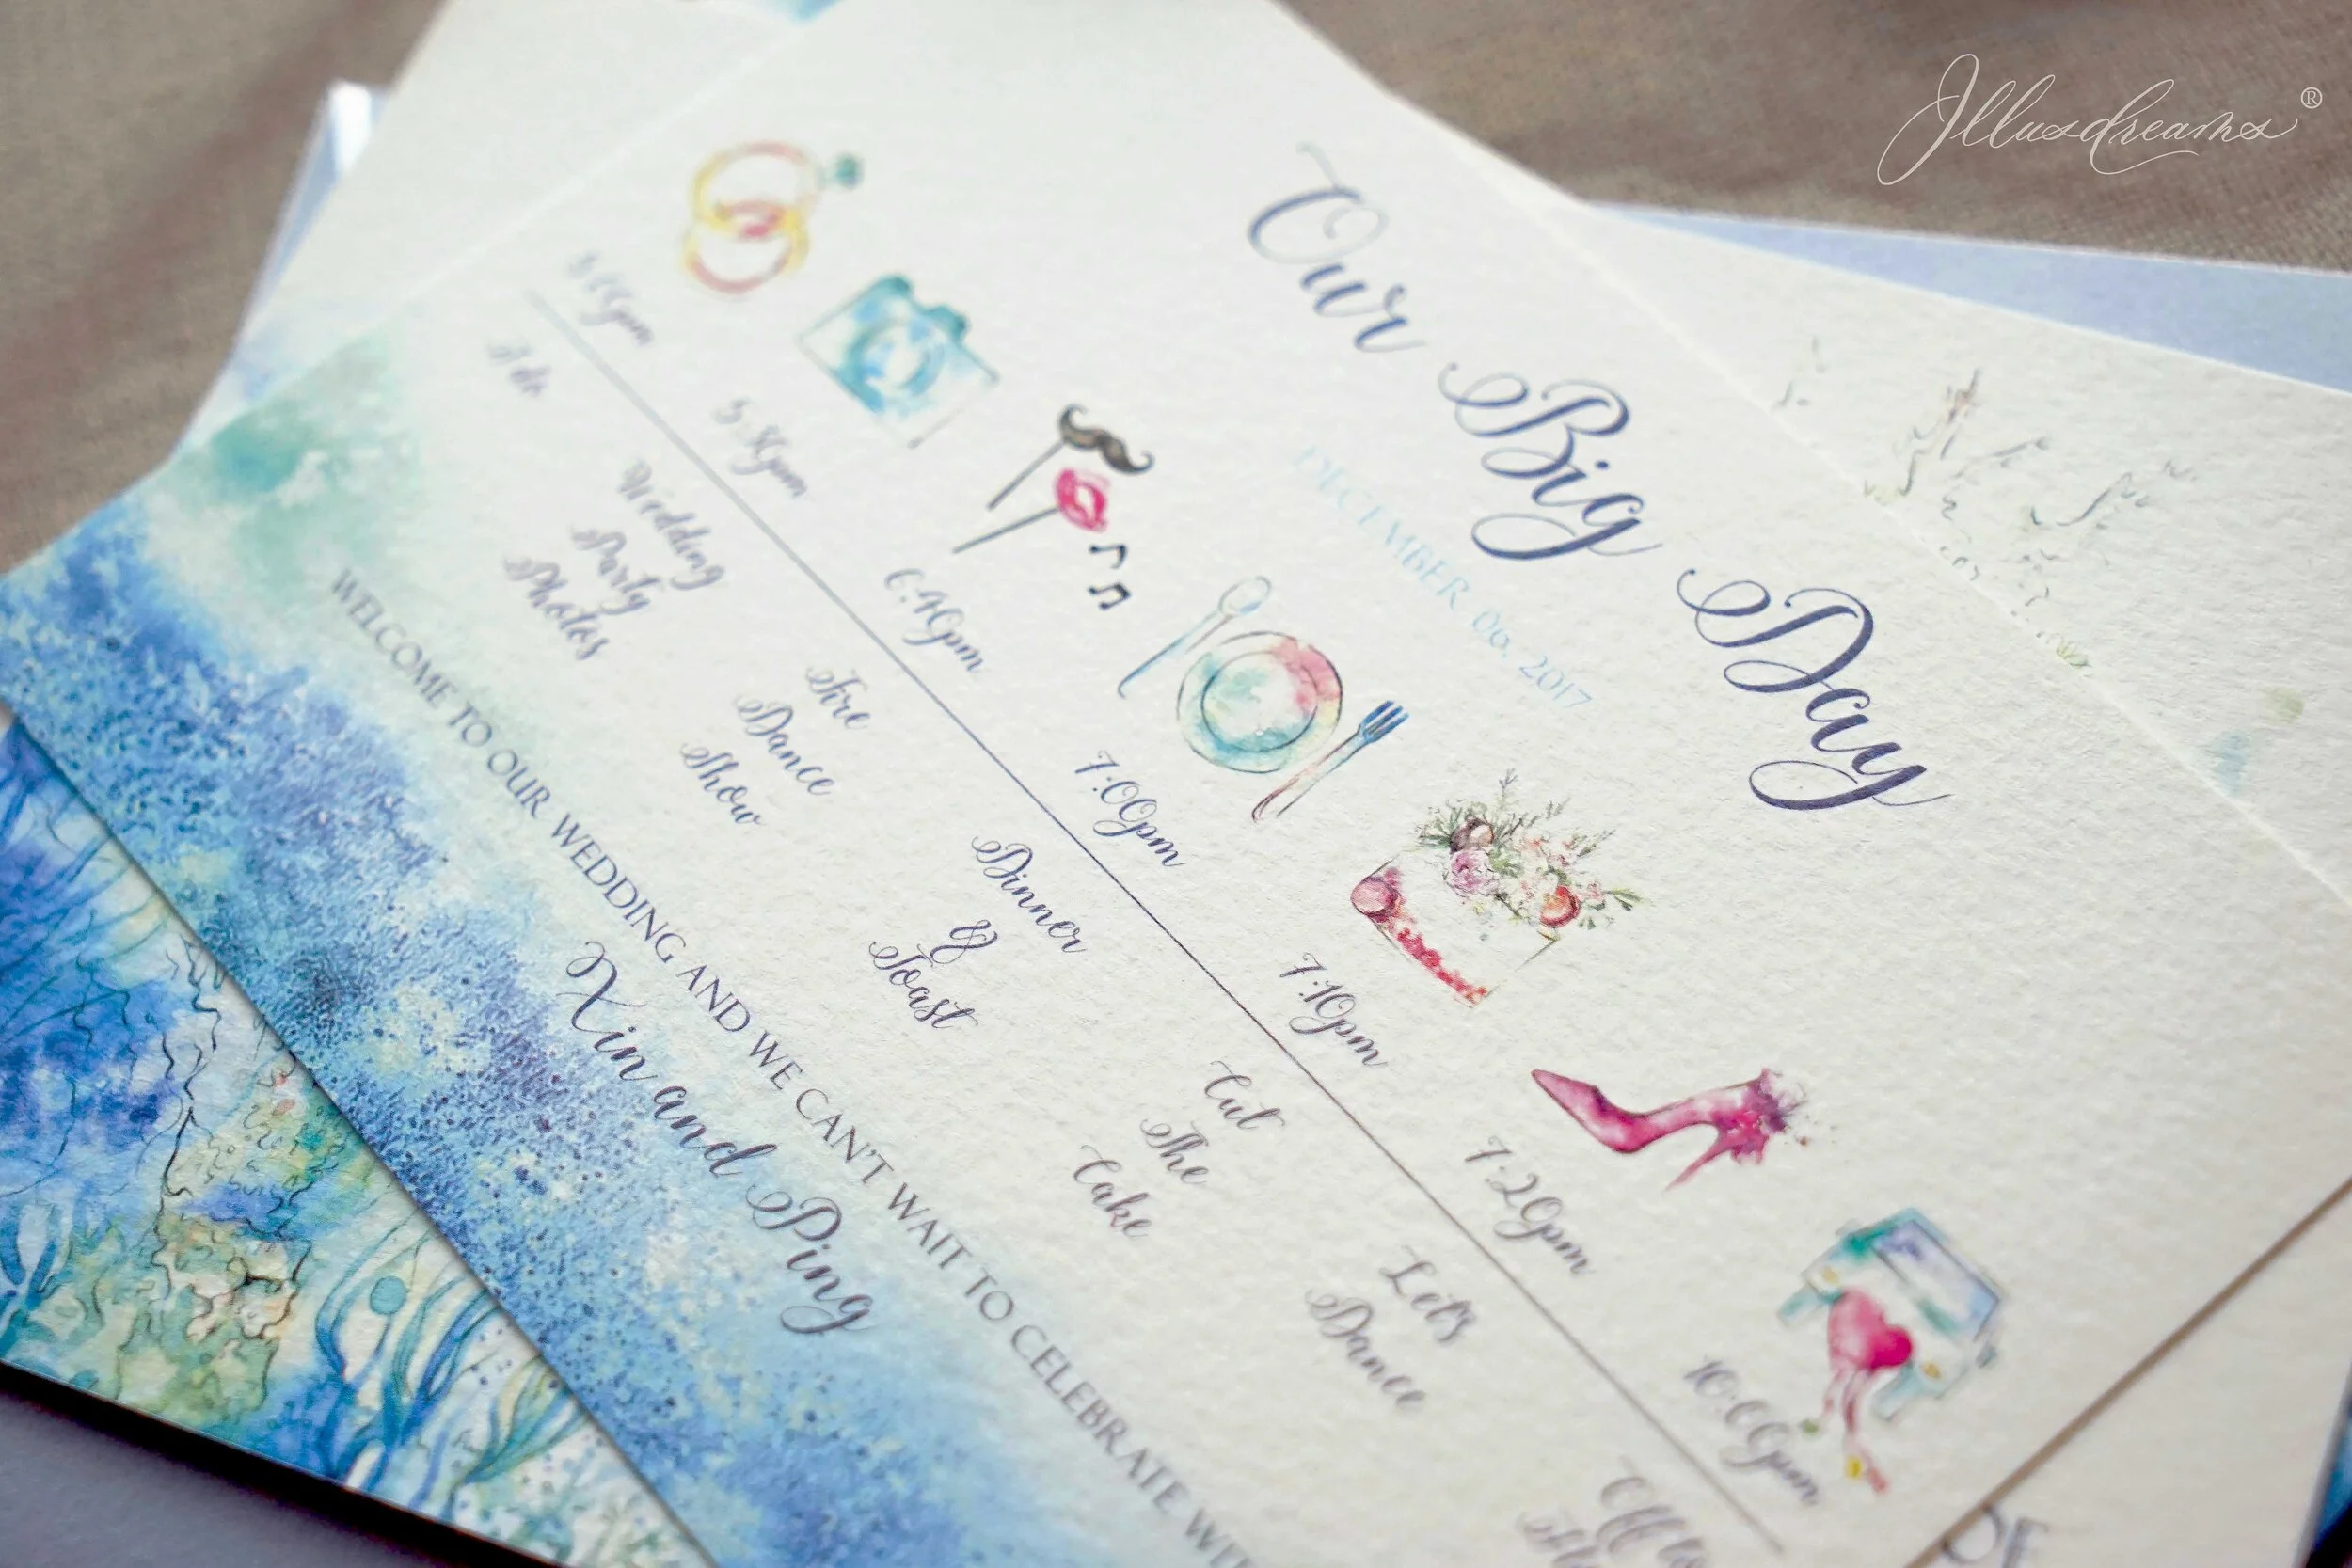 Illusdreams®
Our Big Day
DECEMBER 06, 2017
5:00pm
I do
5:30pm
Wedding
Party
Photos
6:40pm
Fire
Dance
Show
7:00pm
Dinner
&
Toast
7:10pm
Cut
The
Cake
7:20pm
Let's
Dance
10:00pm
Off to
WELCOME TO OUR WEDDING AND WE CAN'T WAIT TO CELEBRATE
Xin and Ping